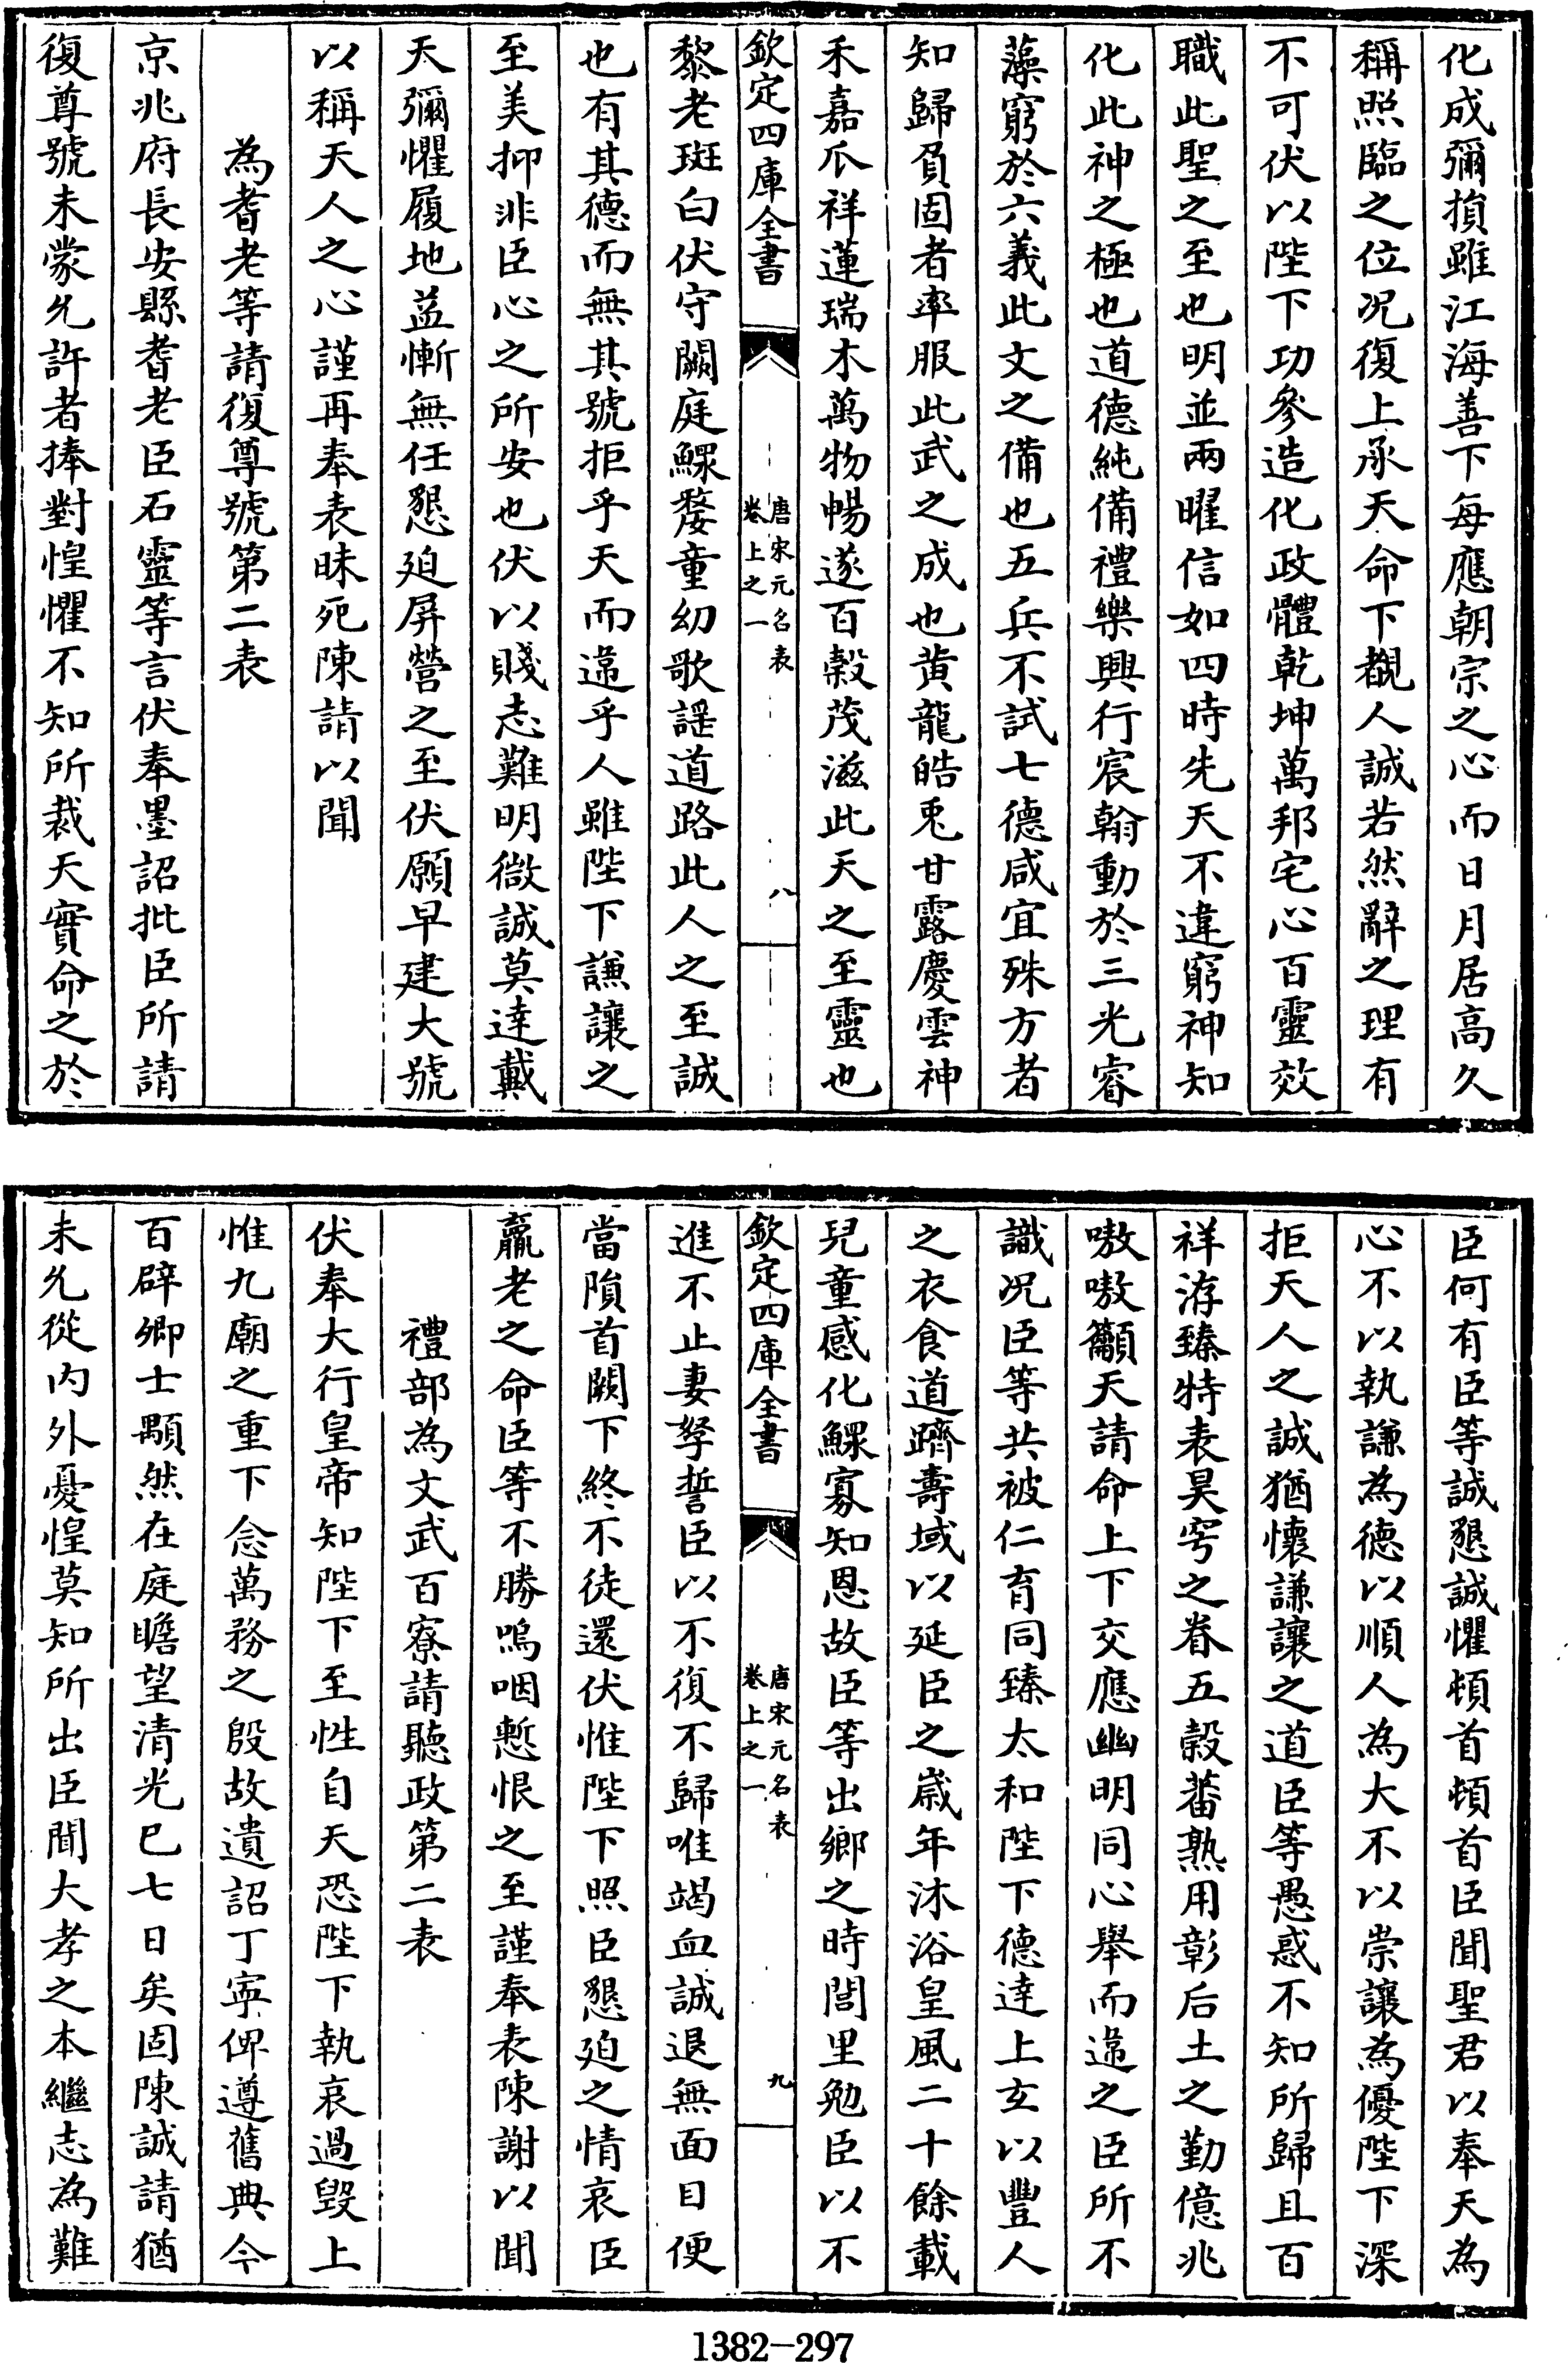 化成彌損雖江海善下每應朝宗之心而日月居高久
稱照臨之位况復上承天命下覩人誠若然辭之理有
不可伏以陛下功參造化政體乾坤萬邦宅心百靈效
職此聖之至也明並兩曜信如四時先天不違窮神知
化此神之極也道德純備禮樂興行宸翰動於三光睿
藻窮於六義此文之備也五兵不試七德咸宜殊方者
知歸負固者率服此武之成也黄龍皓兎甘露慶雲神
禾嘉瓜祥蓮瑞木萬物暢遂百榖茂滋此天之至靈也
欽定四庫全書
唐宋元名表
卷上之一
八
黎老斑白伏守闕庭鰥嫠童幼歌謡道路此人之至誠
也有其德而無其號拒乎天而違乎人雖陛下謙讓之
至美抑非臣心之所安也伏以賤志難明微誠莫達戴
天彌懼履地益慚無任懇迫屏營之至伏願早建大號
以稱天人之心謹再奉表昧死陳請以聞
為耆老等請復尊號第二表
京兆府長安縣耆老臣石靈等言伏奉墨詔批臣所請
復尊號未蒙允許者捧對惶懼不知所裁天實命之於
臣何有臣等誠懇誠懼頓首頓首臣聞聖君以奉天為
心不以執謙為德以順人為大不以崇讓為優陛下深
拒天人之誠猶懷謙讓之道臣等愚惑不知所歸且百
祥洊臻特表昊穹之眷五榖蕃熟用彰后土之勤億兆
嗷嗷籲天請命上下交應幽明同心舉而違之臣所不
識况臣等共被仁育同臻太和陛下德達上玄以豐人
之衣食道躋壽域以延臣之歲年沐浴皇風二十餘載
兒童感化鰥寡知恩故臣等出鄉之時閭里勉臣以不
欽定四庫全書
唐宋元名表
卷上之一
九
進不止妻孥誓臣以不復不歸唯竭血誠退無面目便
當隕首闕下終不徒還伏惟陛下照臣懇迫之情哀臣
羸老之命臣等不勝嗚咽慙恨之至謹奉表陳謝以聞
禮部為文武百寮請聽政第二表
伏奉大行皇帝知陛下至性自天恐陛下執哀過毁上
惟九廟之重下念萬務之殷故遺詔丁寧俾遵舊典今
百辟卿士顒然在庭瞻望清光已七日矣固陳誠請猶
未允從内外憂惶莫知所出臣聞大孝之本繼志為難
1382-297